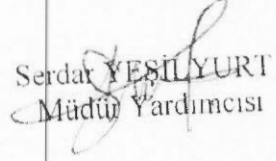 Serdar YEŞİLYURT
Müdür Yardımcısı